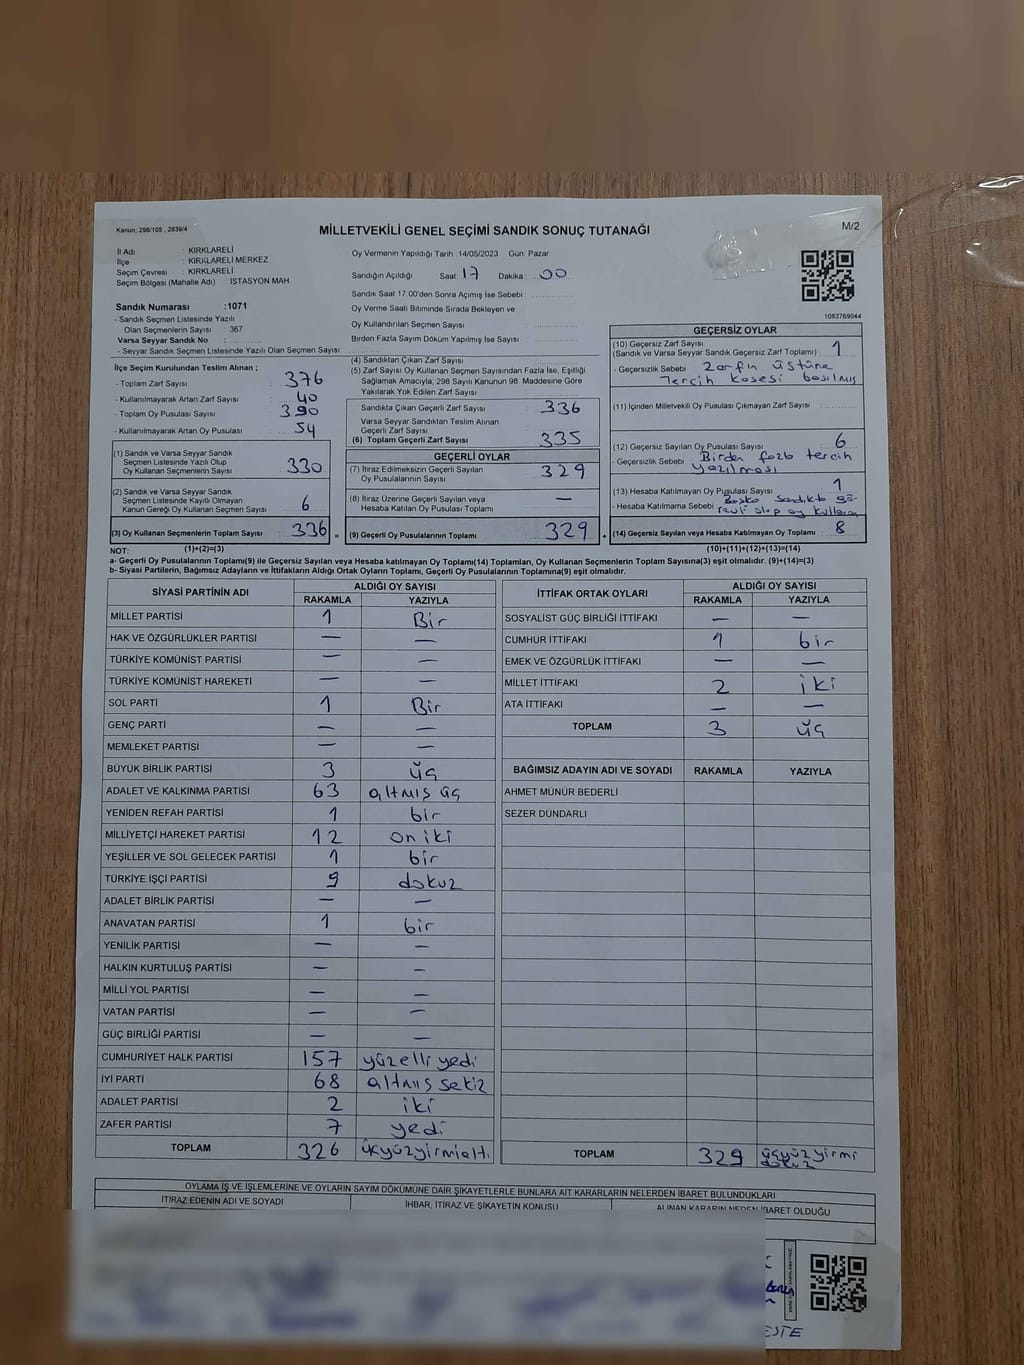 Kanun; 298/105 , 2839/4
MİLLETVEKİLİ GENEL SEÇİMİ SANDIK SONUÇ TUTANAĞI
M/2
İl Adı : KIRKLARELİ
İlçe : KIRKLARELİ MERKEZ
Seçim Çevresi : KIRKLARELİ
Seçim Bölgesi (Mahalle Adı) : İSTASYON MAH.
Oy Vermenin Yapıldığı Tarih :14/05/2023 Gün: Pazar
Sandığın Açıldığı Saat: 17 Dakika : 00
Sandık Saat 17.00'den Sonra Açımış İse Sebebi :
Oy Verme Saati Bitiminde Sırada Bekleyen ve
Oy Kullandırılan Seçmen Sayısı
Birden Fazla Sayım Döküm Yapılmış İse Sayısı :
1083769044
Sandık Numarası :1071
- Sandık Seçmen Listesinde Yazılı
Olan Seçmenlerin Sayısı : 367
Varsa Seyyar Sandık No :
- Seyyar Sandık Seçmen Listesinde Yazılı Olan Seçmen Sayısı:
İlçe Seçim Kurulundan Teslim Alınan ;
- Toplam Zarf Sayısı 376
- Kullanılmayarak Artan Zarf Sayısı 40
- Toplam Oy Pusulası Sayısı 390
- Kullanılmayarak Artan Oy Pusulası 54
(1) Sandık ve Varsa Seyyar Sandık
Seçmen Listesinde Yazılı Olup
Oy Kullanan Seçmenlerin Sayısı 330
(2) Sandık ve Varsa Seyyar Sandık
Seçmen Listesinde Kayıtlı Olmayan
Kanun Gereği Oy Kullanan Seçmen Sayısı 6
(3) Oy Kullanan Seçmenlerin Toplam Sayısı 336
(1)+(2)=(3)
(4) Sandıktan Çıkan Zarf Sayısı
(5) Zarf Sayısı Oy Kullanan Seçmen Sayısından Fazla İse, Eşitliği
Sağlamak Amacıyla, 298 Sayılı Kanunun 98. Maddesine Göre
Yakılarak Yok Edilen Zarf Sayısı
Sandıkta Çıkan Geçerli Zarf Sayısı 336
Varsa Seyyar Sandıktan Teslim Alınan
Geçerli Zarf Sayısı
(6) Toplam Geçerli Zarf Sayısı 335
GEÇERLİ OYLAR
(7) İtiraz Edilmeksizin Geçerli Sayılan
Oy Pusulasının Sayısı 329
(8) İtiraz Üzerine Geçerli Sayılan veya
Hesaba Katılan Oy Pusulası Toplamı —
= (9) Geçerli Oy Pusulalarının Toplamı 329
GEÇERSİZ OYLAR
(10) Geçersiz Zarf Sayısı
(Sandık ve Varsa Seyyar Sandık Geçersiz Zarf Toplamı) : 1
- Geçersizlik Sebebi : Zarfın üstüne
Tercih kasesi basılmış
(11) İçinden Milletvekili Oy Pusulası Çıkmayan Zarf Sayısı :
(12) Geçersiz Sayılan Oy Pusulası Sayısı 6
- Geçersizlik Sebebi : Birden fazla tercih
yazılması
(13) Hesaba Katılmayan Oy Pusulası Sayısı 1
- Hesaba Katılmama Sebebi : Başka sandıkta gö
revli olup oy
+ (14) Geçersiz Sayılan veya Hesaba Katılmayan Oy Toplamı 8
(10)+(11)+(12)+(13)=(14)
NOT:
a- Geçerli Oy Pusulalarının Toplamı(9) ile Geçersiz Sayılan veya Hesaba katılmayan Oy Toplamı(14) Toplamları, Oy Kullanan Seçmenlerin Toplam Sayısına(3) eşit olmalıdır. (9)+(14)=(3)
b- Siyasi Partilerin, Bağımsız Adayların ve İttifakların Aldığı Ortak Oyların Toplamı, Geçerli Oy Pusulalarının Toplamına(9) eşit olmalıdır.
SİYASİ PARTİNİN ADI ALDIĞI OY SAYISI
RAKAMLA YAZIYLA
MİLLET PARTİSİ 1 Bir
HAK VE ÖZGÜRLÜKLER PARTİSİ — —
TÜRKİYE KOMÜNİST PARTİSİ — —
TÜRKİYE KOMÜNİST HAREKETİ — —
SOL PARTİ 1 Bir
GENÇ PARTİ — —
MEMLEKET PARTİSİ — —
BÜYÜK BİRLİK PARTİSİ 3 üç
ADALET VE KALKINMA PARTİSİ 63 altmış üç
YENİDEN REFAH PARTİSİ 1 bir
MİLLİYETÇİ HAREKET PARTİSİ 12 on iki
YEŞİLLER VE SOL GELECEK PARTİSİ 1 bir
TÜRKİYE İŞÇİ PARTİSİ 9 dokuz
ADALET BİRLİK PARTİSİ — —
ANAVATAN PARTİSİ 1 bir
YENİLİK PARTİSİ — —
HALKIN KURTULUŞ PARTİSİ — —
MİLLİ YOL PARTİSİ — —
VATAN PARTİSİ — —
GÜÇ BİRLİĞİ PARTİSİ — —
CUMHURİYET HALK PARTİSİ 157 yüzelli yedi
İYİ PARTİ 68 altmış sekiz
ADALET PARTİSİ 2 iki
ZAFER PARTİSİ 7 yedi
TOPLAM 326 üçyüzyirmialtı
İTTİFAK ORTAK OYLARI ALDIĞI OY SAYISI
RAKAMLA YAZIYLA
SOSYALİST GÜÇ BİRLİĞİ İTTİFAKI — —
CUMHUR İTTİFAKI 1 bir
EMEK VE ÖZGÜRLÜK İTTİFAKI — —
MİLLET İTTİFAKI 2 iki
ATA İTTİFAKI — —
TOPLAM 3 üç
BAĞIMSIZ ADAYIN ADI VE SOYADI RAKAMLA YAZIYLA
AHMET MÜNÜR BEDERLİ
SEZER DÜNDARLI
TOPLAM 329 üçyüzyirmi
dokuz
OYLAMA İŞ VE İŞLEMLERİNE VE OYLARIN SAYIM DÖKÜMÜNE DAİR ŞİKAYETLERLE BUNLARA AİT KARARLARIN NELERDEN İBARET BULUNDUKLARI
İTİRAZ EDENİN ADI VE SOYADI İHBAR, İTİRAZ VE ŞİKAYETİN KONUSU ALINAN KARARIN NEDEN İBARET OLDUĞU